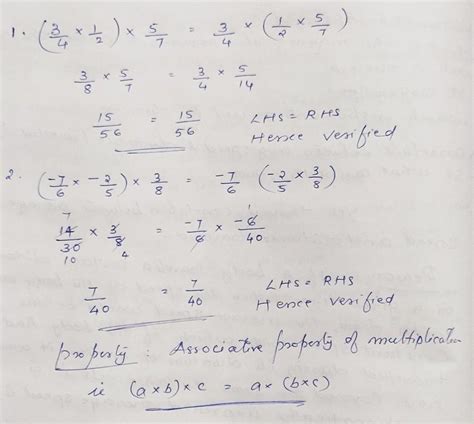 1. (3/4 × 1/2) × 5/7 = 3/4 × (1/2 × 5/7)
3/8 × 5/7 = 3/4 × 5/14
15/56 = 15/56 LHS = RHS
Hence verified
2. (-7/6 × -2/5) × 3/8 = -7/6 (-2/5 × 3/8)
7 1
14/30 × 3/8 = -7/6 × -6/40
10 4
7/40 = 7/40 LHS = RHS
Hence verified
property : Associative property of multiplication
ie (a×b)×c = a×(b×c)